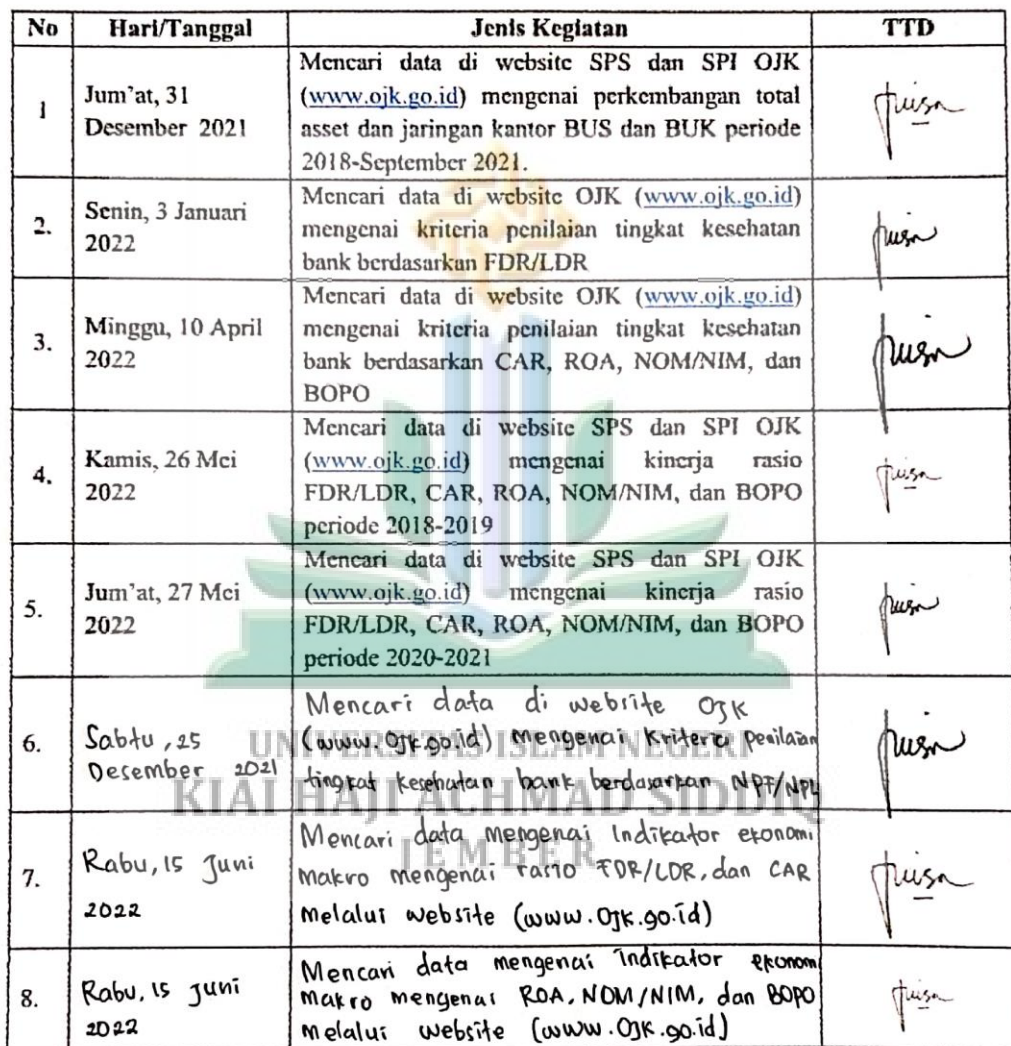 No Hari/Tanggal Jenis Kegiatan TTD
1 Jum'at, 31 Desember 2021
Mencari data di website SPS dan SPI OJK
(www.ojk.go.id) mengenai perkembangan total
asset dan jaringan kantor BUS dan BUK periode
2018-September 2021.
2. Senin, 3 Januari 2022
Mencari data di website OJK (www.ojk.go.id)
mengenai kriteria penilaian tingkat kesehatan
bank berdasarkan FDR/LDR
3. Minggu, 10 April 2022
Mencari data di website OJK (www.ojk.go.id)
mengenai kriteria penilaian tingkat kesehatan
bank berdasarkan CAR, ROA, NOM/NIM, dan
BOPO
4. Kamis, 26 Mei 2022
Mencari data di website SPS dan SPI OJK
(www.ojk.go.id) mengenai kinerja rasio
FDR/LDR, CAR, ROA, NOM/NIM, dan BOPO
periode 2018-2019
5. Jum'at, 27 Mei 2022
Mencari data di website SPS dan SPI OJK
(www.ojk.go.id) mengenai kinerja rasio
FDR/LDR, CAR, ROA, NOM/NIM, dan BOPO
periode 2020-2021
6. Sabtu, 25 Desember 2021
Mencari data di website OJK
(www.OJK.go.id) mengenai Kriteria penilaian
tingkat kesehatan bank berdasarkan NPF/NPL
UNIVERSITAS ISLAM NEGERI
KIAI HAJI ACHMAD SIDDIQ
JEMBER
7. Rabu, 15 Juni 2022
Mencari data mengenai Indikator ekonomi
makro mengenai rasio FDR/LDR, dan CAR
melalui website (www.OJK.go.id)
8. Rabu, 15 Juni 2022
Mencari data mengenai Indikator ekonom
makro mengenai ROA, NOM/NIM, dan BOPO
melalui website (www.OJK.go.id)